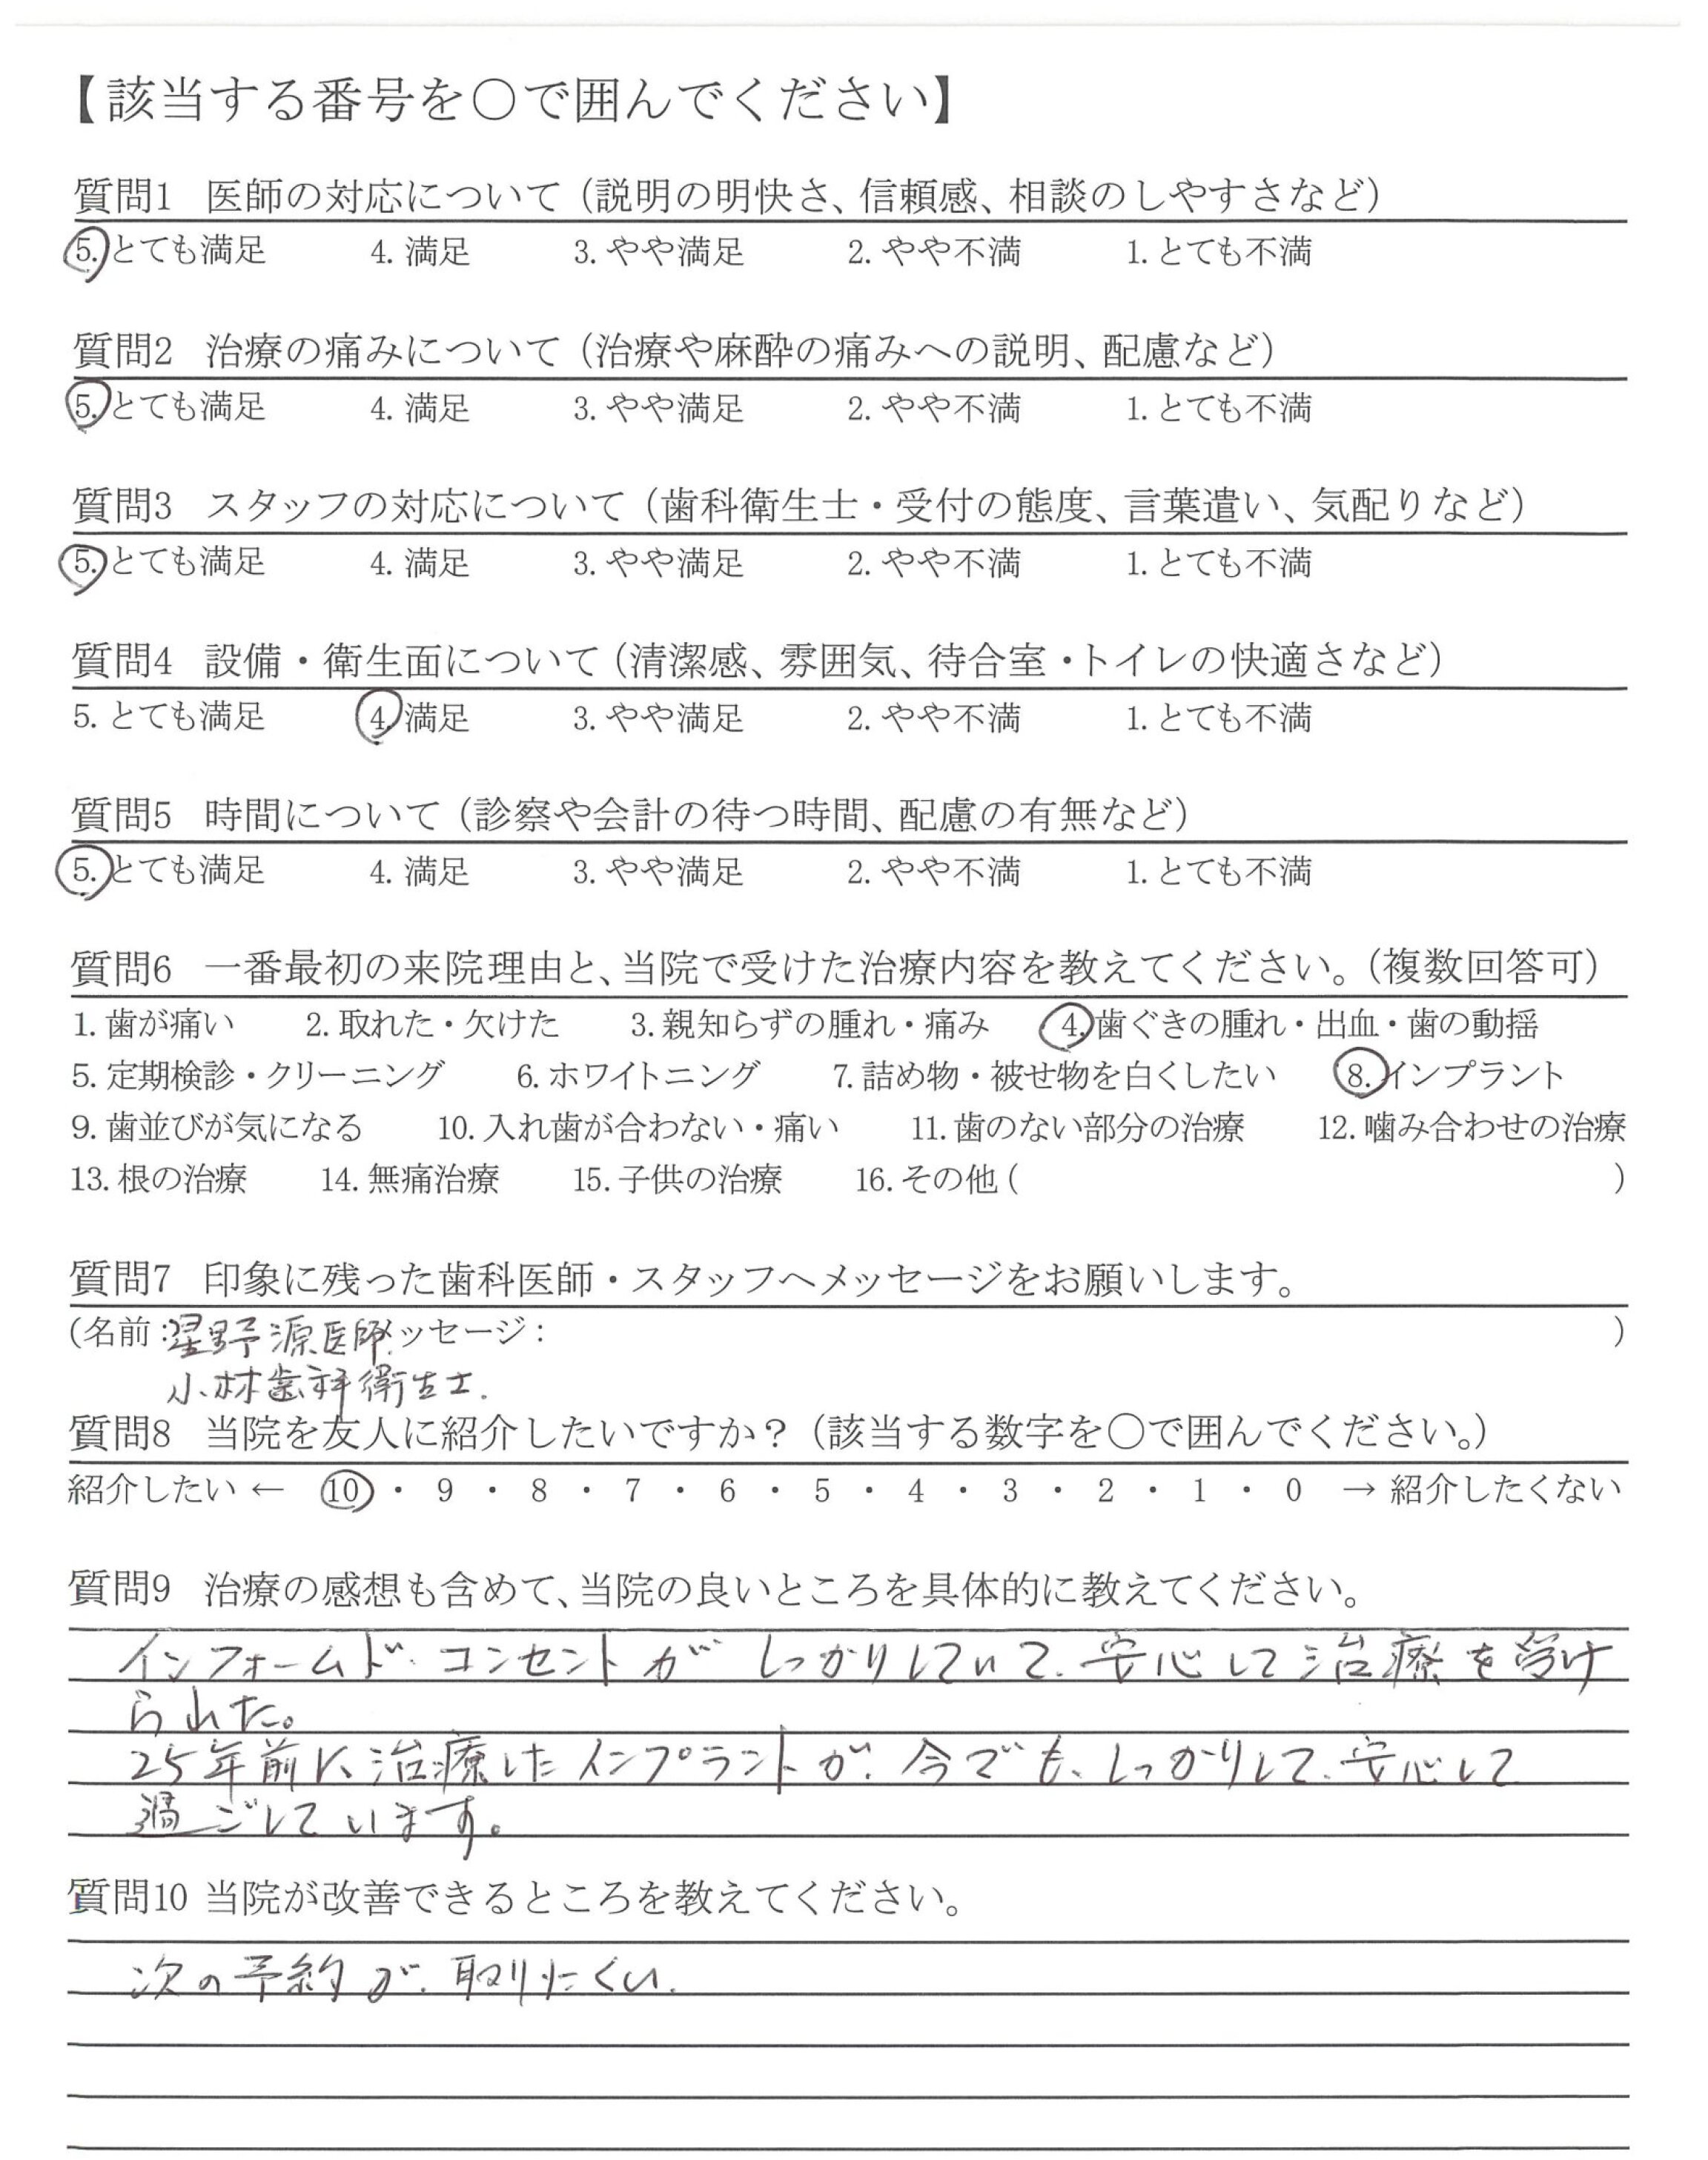 【該当する番号を○で囲んでください】
質問1 医師の対応について（説明の明快さ、信頼感、相談のしやすさなど）
5. とても満足 4. 満足 3. やや満足 2. やや不満 1. とても不満
質問2 治療の痛みについて（治療や麻酔の痛みへの説明、配慮など）
5. とても満足 4. 満足 3. やや満足 2. やや不満 1. とても不満
質問3 スタッフの対応について（歯科衛生士・受付の態度、言葉遣い、気配りなど）
5. とても満足 4. 満足 3. やや満足 2. やや不満 1. とても不満
質問4 設備・衛生面について（清潔感、雰囲気、待合室・トイレの快適さなど）
5. とても満足 4. 満足 3. やや満足 2. やや不満 1. とても不満
質問5 時間について（診察や会計の待つ時間、配慮の有無など）
5. とても満足 4. 満足 3. やや満足 2. やや不満 1. とても不満
質問6 一番最初の来院理由と、当院で受けた治療内容を教えてください。（複数回答可）
1. 歯が痛い 2. 取れた・欠けた 3. 親知らずの腫れ・痛み 4. 歯ぐきの腫れ・出血・歯の動揺
5. 定期検診・クリーニング 6. ホワイトニング 7. 詰め物・被せ物を白くしたい 8. インプラント
9. 歯並びが気になる 10. 入れ歯が合わない・痛い 11. 歯のない部分の治療 12. 噛み合わせの治療
13. 根の治療 14. 無痛治療 15. 子供の治療 16. その他 ( )
質問7 印象に残った歯科医師・スタッフへメッセージをお願いします。
(名前：星野源医師 メッセージ： )
小林歯科衛生士.
質問8 当院を友人に紹介したいですか？（該当する数字を○で囲んでください。）
紹介したい ← 10 ・ 9 ・ 8 ・ 7 ・ 6 ・ 5 ・ 4 ・ 3 ・ 2 ・ 1 ・ 0 → 紹介したくない
質問9 治療の感想も含めて、当院の良いところを具体的に教えてください。
インフォームド・コンセントが しっかりしていて、安心して治療を受け
られた。
25年前に治療したインプラントが、今でも、しっかりして、安心して
過ごしています。
質問10 当院が改善できるところを教えてください。
次の予約が、取りにくい.